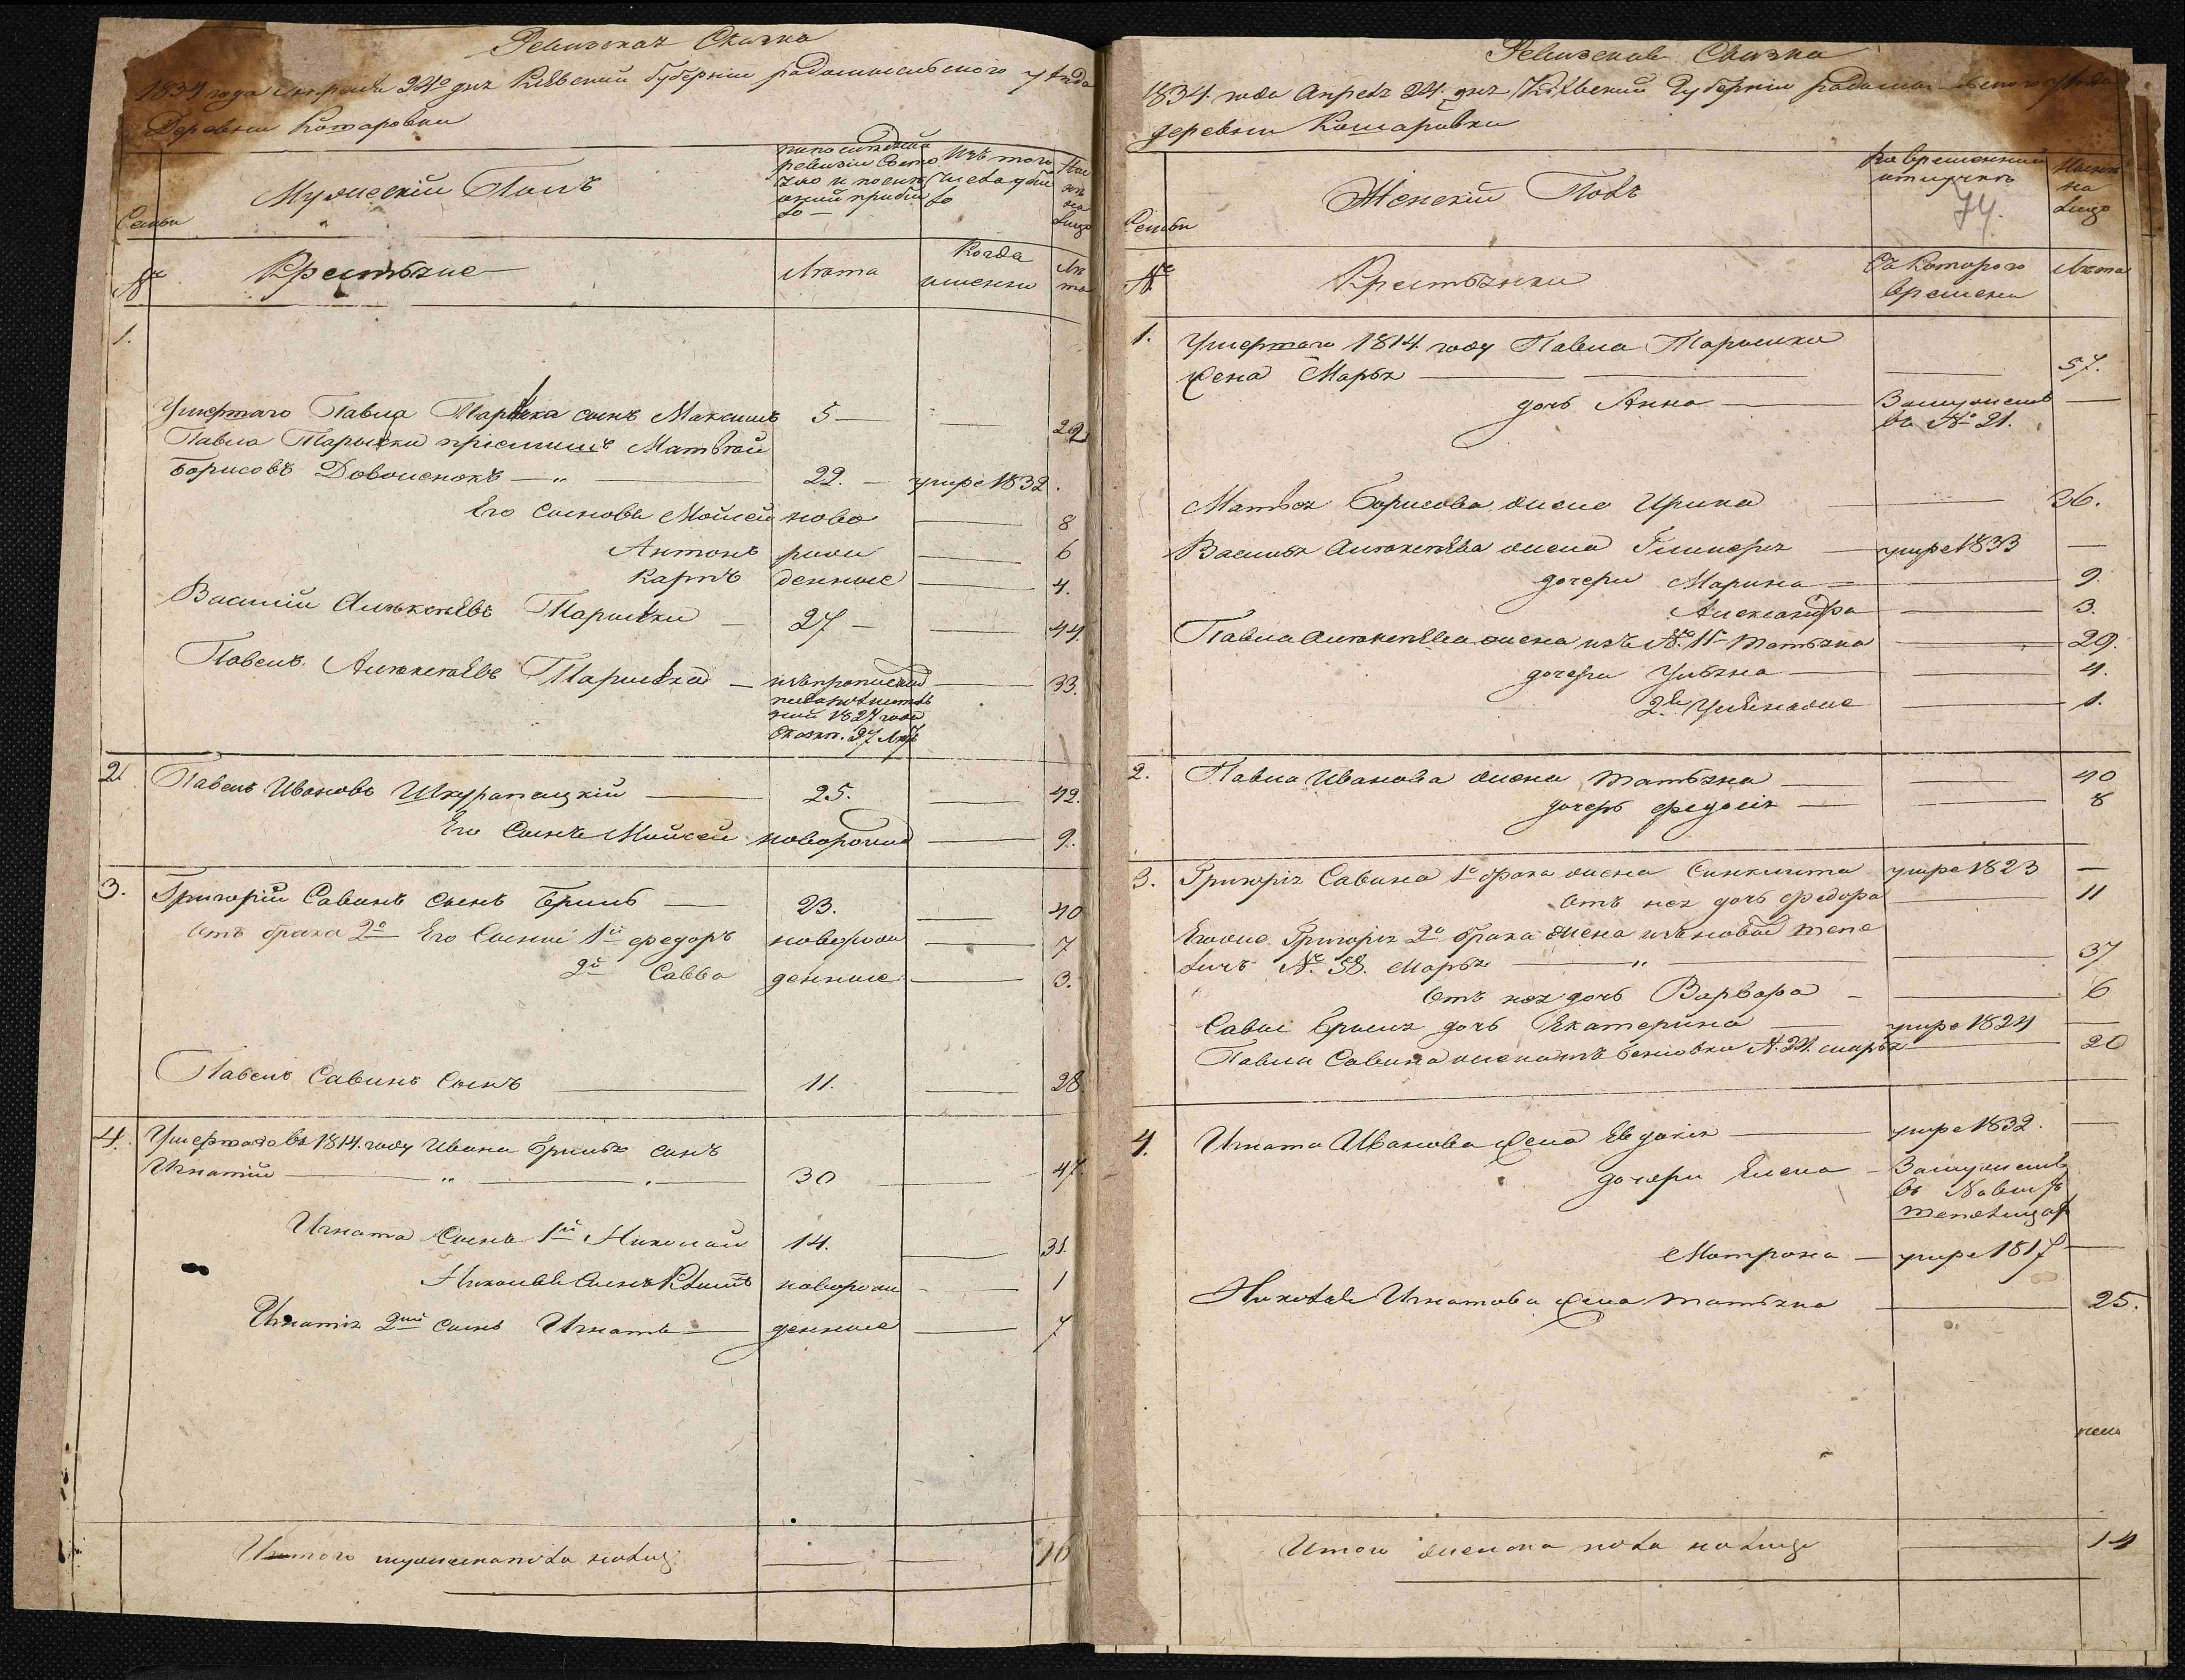 Ревизская Сказка
1834 года Апреля 24го дня Кіевской Губерніи радомысльского уезда
Деревни Комаровки
Семьи
Мужескій Полъ
по последней
ревизіи состо
яло и после
оной прибы
ло —
Изъ того
числа убы
ло
Ныне
на
лицо
№
Крестьяне
Лѣта
Когда
именно
Лѣ
та
1.
Умершаго Павла сынъ Максимъ 5 — — 22
Павла пріемышъ Матвѣй
Борисовъ — „ — 22. — умре 1832.
Его Сыновья Мойсей ново — 8
Антонъ рож — 6
Карпъ денные — 4.
Василій Алексѣевъ — 27 — — 44
Павелъ Алексѣевъ — — 33.
1827 года
2. Павелъ Ивановъ Шкурапацкій — 25. — 42.
Его Сынъ Мойсей новорожд — 9.
3. Григорій Савинъ сынъ — 23. — 40
Отъ брака 2го Его Сыны 1й Федоръ новорож — 7
2й Савва денные — 3.
Павелъ Савинъ Сынъ — 11. — 28
4. Умершаго въ 1814. году Ивана сынъ
Игнатій — „ — 30 — 47.
Игната Сынъ 1й Николай 14. — 31.
Николая Сынъ новорож — 1
Игнатія 2й сынъ Игнатъ — денные — 7
Итого мужеска пола налиц. — — 16
Ревизская Сказка
1834. года Апреля 24. дня Кіевской Губерніи уезда
деревни Комаровки
Семьи
Женскій Полъ
Во временной
отлучкѣ
74.
Ныне
на
лицо
№
Крестьянки
Съ Которого
времени
Лѣта
1. Умершаго 1814. году Павла
жена Марья — — — 57.
дочь Анна — Замужемъ —
въ № 21.
Матвея Борисова жена Ирина — 36.
Василья Алексѣева жена Гликерія — умре 1833 —
дочери Марина — — 9
Александра — 3.
Павла Алексѣева жена изъ № 11 Татьяна — 29.
дочери Ульяна — — 4.
2я Ульяна же — 1.
2. Павла Иванова жена Татьяна — — 40
дочерь Федосія — — 8
3. Григорія Савина 1го брака жена Синклита умре 1823 —
Отъ нея дочь Федора — 11
Егоже Григорія 2го брака жена изъ новой Тепе
лицъ № 58. Марья — „ — — 37
Отъ нея дочь Варвара — — 6
Савы дочь Екатерина — умре 1824 —
Павла Савина жена изъ № 24. Марья — 20
4. Игната Иванова жена Евдокія — умре 1832. —
дочери Елена — Замужемъ
въ Новыхъ
Тепелицах
Матрона — умре 1817 —
Николая Игнатова жена Татьяна — 25.
Итого женска пола налицо — 14